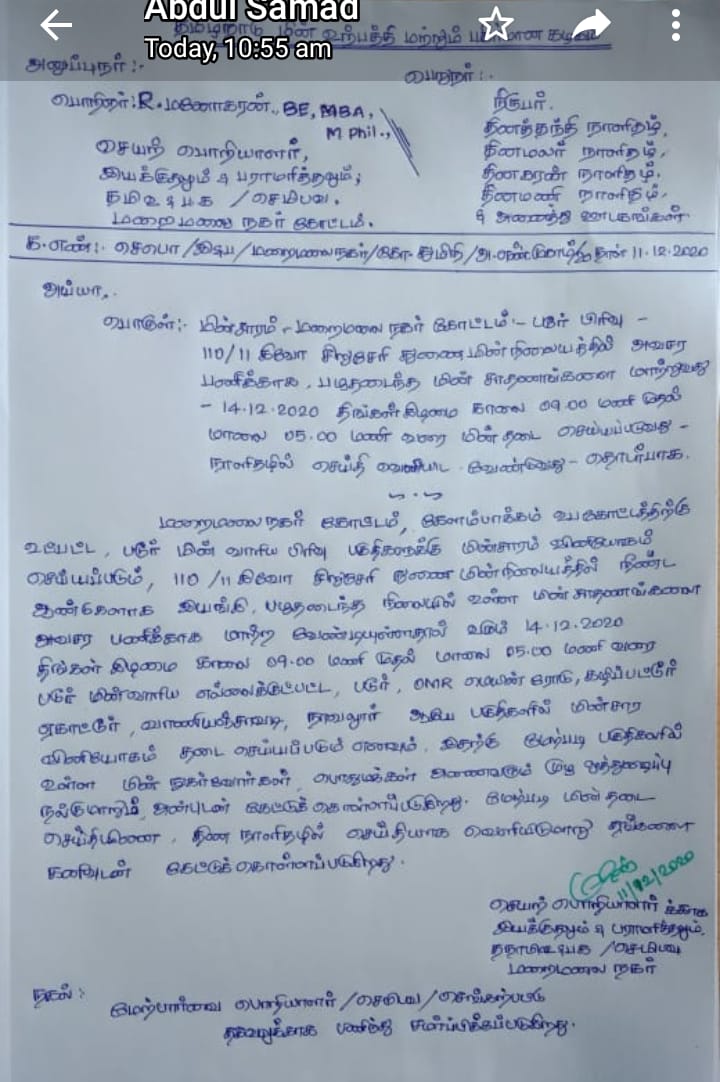 Abdul Samad
Today, 10:55 am
மின் உற்பத்தி மற்றும்
அனுப்புநர் :-
பெறுநர் :-
பொறிஞர் R. மனோகரன்., BE, MBA,
M Phil.,
செயற் பொறியாளர்,
இயக்குதலும் & பராமரித்தலும்,
/செமிபவ.
மறைமலை நகர் கோட்டம்.
நிருபர்.
தினத்தந்தி நாளிதழ்,
தினமலர் நாளிதழ்,
தினகரன் நாளிதழ்.
தினமணி நாளிதழ்.
& அனைத்து ஊடகங்கள்
க.எண்:- செபொ/இ&ப/மறைமலைநகர்/கோ. /அ.எண் நாள் 11.12.2020
அய்யா,.
பொருள்:- மின்சாரம் - மறைமலை நகர் கோட்டம் - படூர் பிரிவு -
110/11 கிவோ சிறுசேரி துணை மின் நிலையத்தில் அவசர
பணிக்காக, பழுதடைந்த மின் சாதனங்களை மாற்றுவது
- 14.12.2020 திங்கள் கிழமை காலை 09.00 மணி முதல்
மாலை 05.00 மணி வரை மின் தடை செய்யப்படுவது -
நாளிதழில் செய்தி வெளியிட வேண்டுவது - தொடர்பாக.
மறைமலை நகர் கோட்டம், கேளம்பாக்கம் உபகோட்டத்திற்கு
உட்பட்ட, படூர் மின் வாரிய பிரிவு பகுதிகளுக்கு மின்சாரம் விநியோகம்
செய்யப்படும், 110/11 கிவோ சிறுசேரி துணை மின் நிலையத்தில் நீண்ட
ஆண்டுகளாக இயங்கி, பழுதடைந்த நிலையில் உள்ள மின் சாதனங்களை
அவசர பணிக்காக மாற்ற வேண்டியுள்ளதால் வரும் 14.12.2020
திங்கள் கிழமை காலை 09.00 மணி முதல் மாலை 05.00 மணி வரை
படூர் மின்வாரிய எல்லைக்குட்பட்ட, படூர், OMR மெயின் ரோடு, கழிப்பட்டூர்
ஏகாட்டூர், வாணியஞ்சாவடி, நாவலூர் ஆகிய பகுதிகளில் மின்சார
விநியோகம் தடை செய்யப்படும் எனவும், இதற்கு மேற்படி பகுதிகளில்
உள்ள மின் நுகர்வோர்கள், பொதுமக்கள் அனைவரும் முழு ஒத்துழைப்பு
நல்குமாறும், அன்புடன் கேட்டுக் கொள்ளப்படுகிறது. மேற்படி மின் தடை
செய்தியினை, தின நாளிதழில் செய்தியாக வெளியிடுமாறு தங்களை
கனிவுடன் கேட்டுக்கொள்ளப்படுகிறது.
11/12/2020
செயற் பொறியாளர் க்காக
இயக்குதலும் & பராமரித்தலும்,
/செமிபவ
மறைமலை நகர்
நகல் :
மேற்பார்வை பொறியாளர் /செமிபவ/செங்கற்பட்டு
தகவலுக்காக பணிந்து சமர்ப்பிக்கப்படுகிறது.